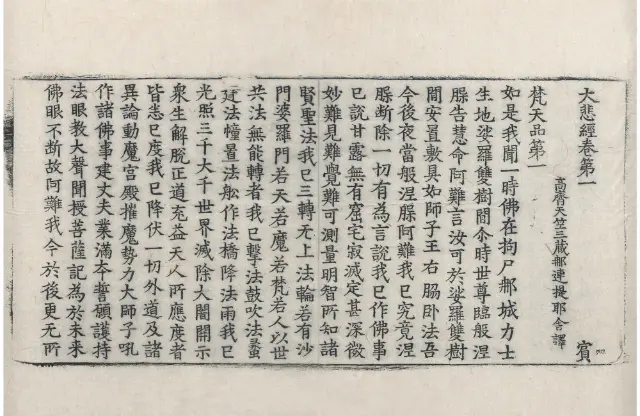 大悲經卷第一 賓
高齊天竺三藏郍連提耶舍譯
梵天品第一
如是我聞一時佛在拘尸郍城力士
生地娑羅雙樹閒尒時世尊臨般涅
槃告慧命阿難言汝可於娑羅雙樹
間安置敷具如師子王右脇卧法吾
今後夜當般涅槃阿難我已究竟涅
槃斷除一切有為言說我已作佛事
已說甘露無有窟宅寂滅定甚深微
妙難見難覺難可測量明智所知諸
賢聖法我已三轉无上法輪若有沙
門婆羅門若天若魔若梵若人以世
共法無能轉者我已擊法鼓吹法蠡
建法幢置法舩作法橋降法雨我已
光照三千大千世界滅除大闇開示
衆生解脫正道充益天人所應度者
皆悉已度我已降伏一切外道及諸
異論動魔宮殿摧魔勢力大師子吼
作諸佛事建丈夫業滿本誓願護持
法眼教大聲聞授菩薩記為於未來
佛眼不斷故阿難我今於後更无所